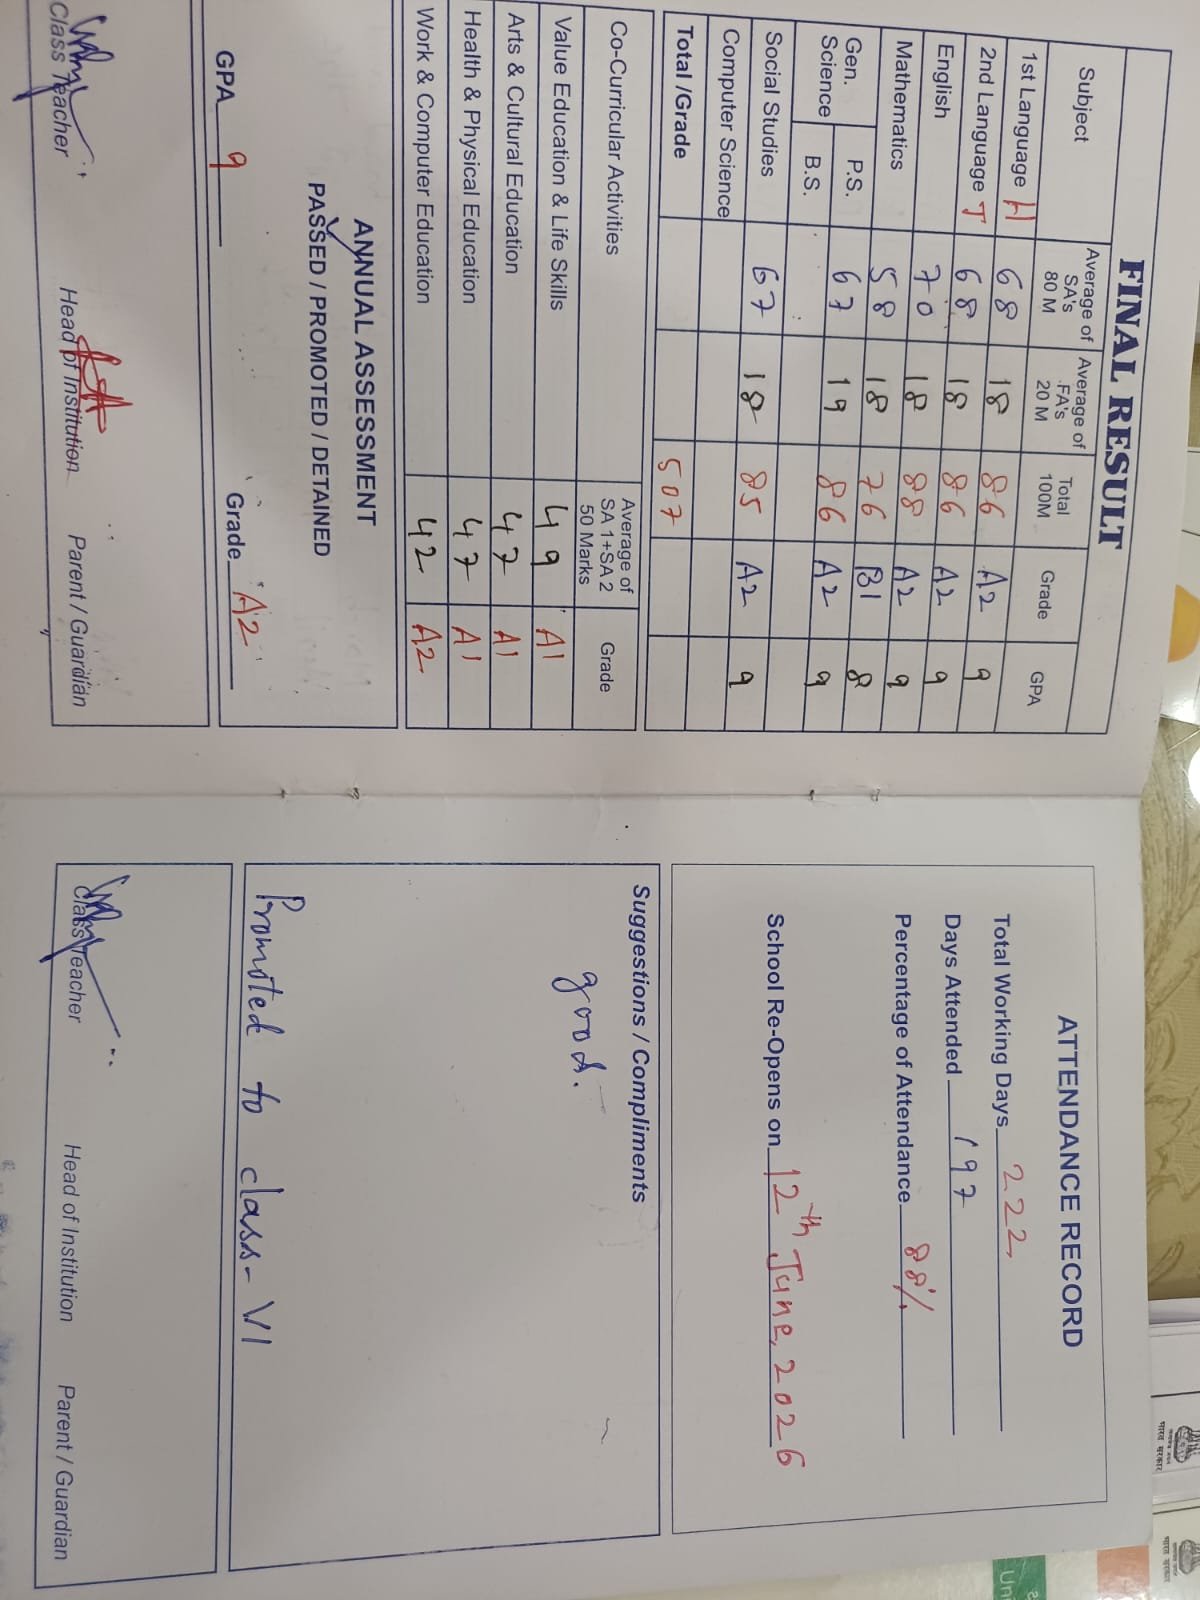 FINAL RESULT
Subject Average of SA's 80 M Average of FA's 20 M Total 100M Grade GPA
1st Language H 68 18 86 A2 9
2nd Language T 68 18 86 A2 9
English 70 18 88 A2 9
Mathematics 58 18 76 B1 8
Gen. Science P.S. 67 19 86 A2 9
B.S.
Social Studies 67 18 85 A2 9
Computer Science
Total /Grade 507
Co-Curricular Activities Average of SA 1+SA 2 50 Marks Grade
Value Education & Life Skills 49 A1
Arts & Cultural Education 47 A1
Health & Physical Education 47 A1
Work & Computer Education 42 A2
ANNUAL ASSESSMENT
PASSED / PROMOTED / DETAINED
GPA 9 Grade A2
Class Teacher Head of Institution Parent / Guardian
ATTENDANCE RECORD
Total Working Days 222
Days Attended 197
Percentage of Attendance 88%
School Re-Opens on 12th June, 2026
Suggestions / Compliments
good.
Promoted to class-VI
Class Teacher Head of Institution Parent / Guardian
भारत सरकार
भारत सरकार